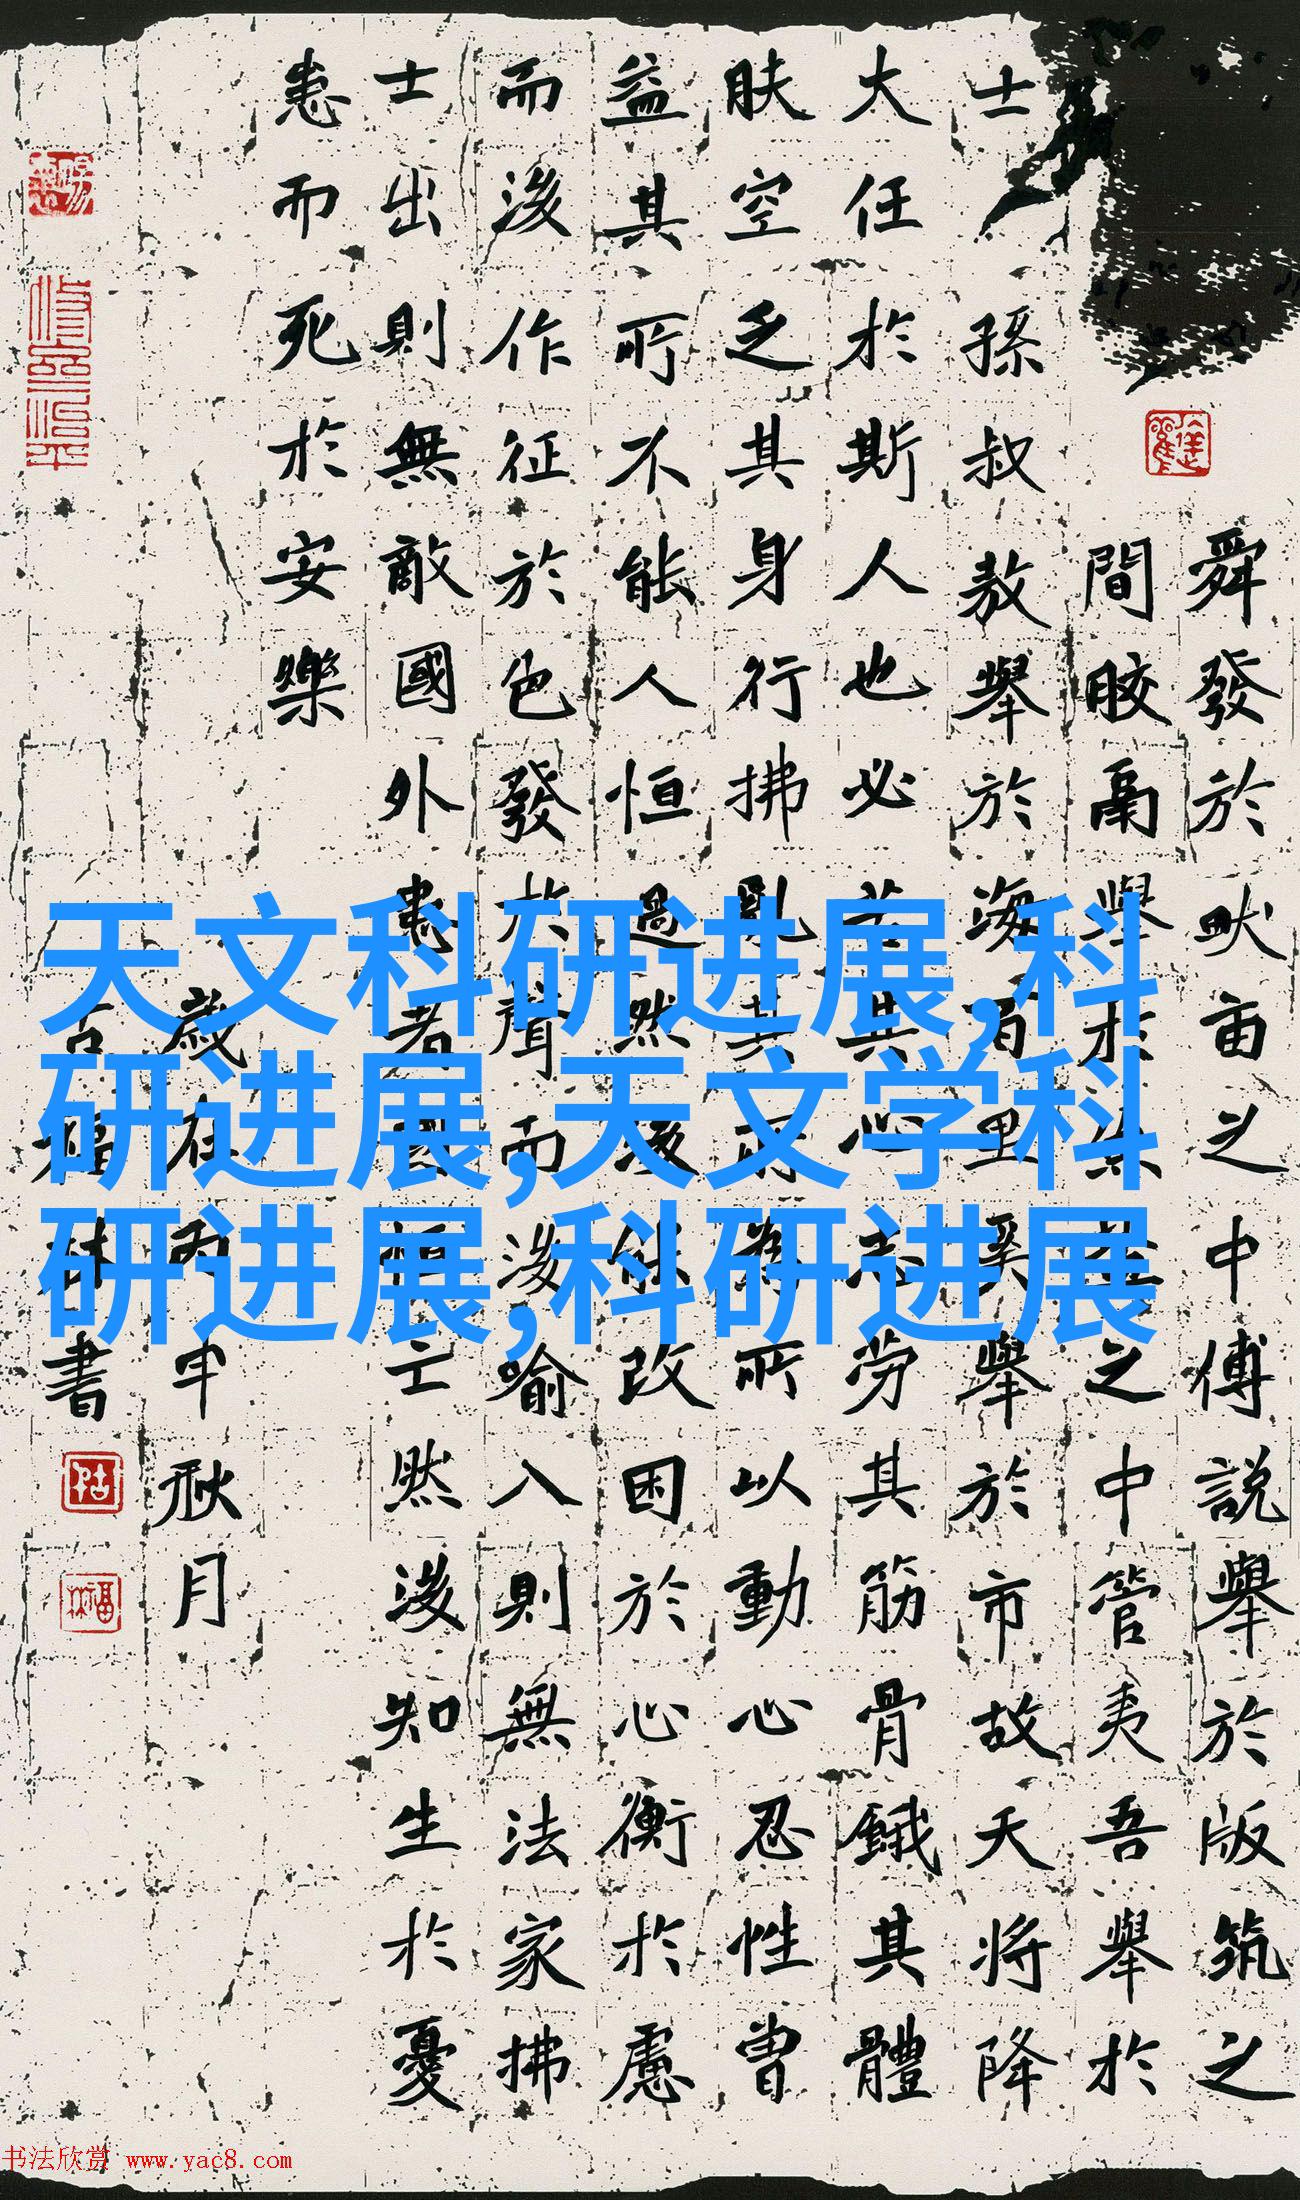 舜發於畎亩之中傅説舉於版筑之
間膠鬲舉於魚盐之中管夷吾舉於
士孫叔敖舉於海百里奚舉於市故天將降
大任於斯人也必苦其心志劳其筋骨餓其體
肤空乏其身行拂亂其所為所以動心忍性曾
益其所不能人恒過然後能改困於心衡於慮
而後作征於色發於聲而後喻入則無法家拂
士出則無敵國外患者國恒亡然後知生於憂
患而死於安樂
歲在丙申秋月
古福林書
天文科研进展,科
研进展,天文学科
研进展,科研进展
书法欣赏 www.yac8.com